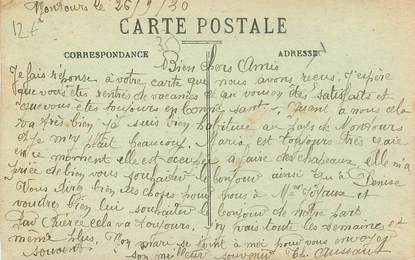 Montours le 26/9/30
12€
CARTE POSTALE
CORRESPONDANCE
ADRESSE
Bien chers Amis
Je fais réponse à votre carte que nous avons reçus, j'espère
que vous êtes rentrés de vacances et an vouez êtes satisfaits et
que vous êtes toujours en bonne santé. Quant à nous cela
va très bien, je suis bien habituée au pays de Montours
et je m'y plait beaucoup. Maria est toujours très gaie
en ce moment elle est occupée à faire des chapeaux elle m'a
priée de bien vous souhaiter le bonjour ainsi qu'à Denise
Vous direz bien des choses pour nous à Mme
voudrez bien lui souhaiter le bonjour de notre part
cela va toujours. J'y vais toute les semaines et
même plus. Mon mari se joint à moi pour vous envoyer
souvent son meilleur souvenir